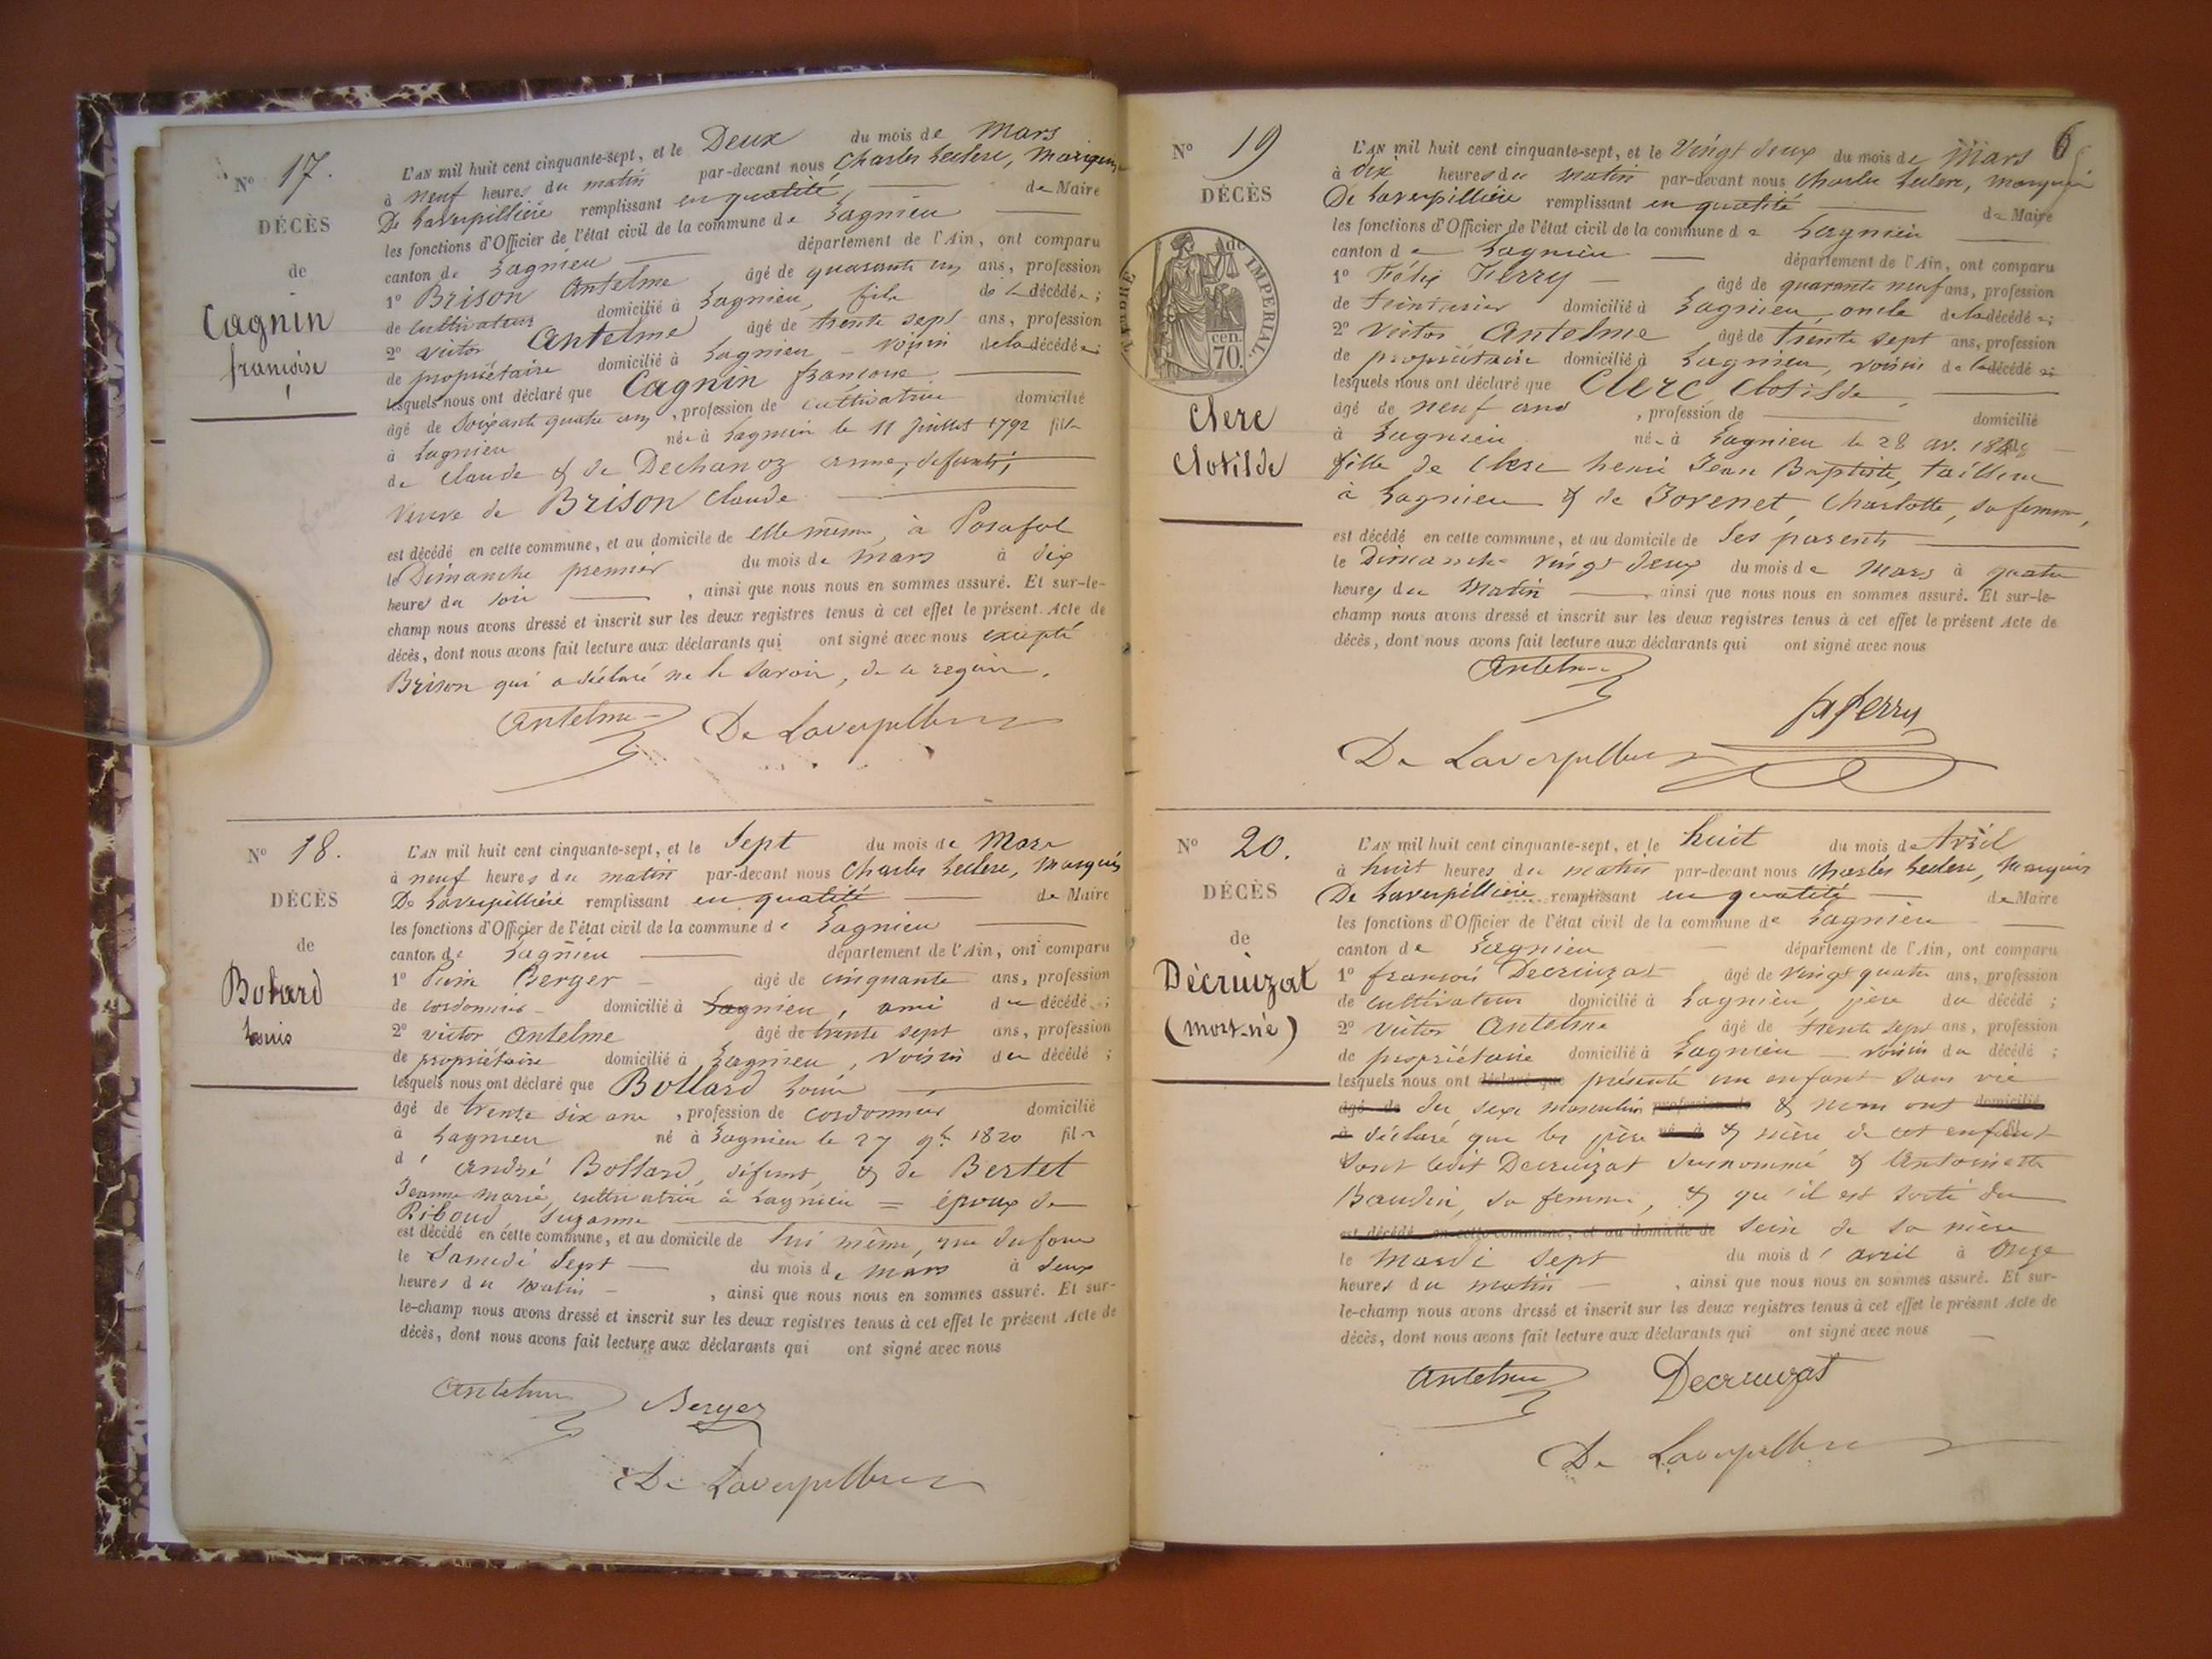 N° 17.
DÉCÈS
de
Cagnin
françoise
L'AN mil huit cent cinquante-sept, et le Deux du mois de Mars
à neuf heures du matin par-devant nous Charles Leclerc, Marquis
De Laverpillière remplissant en qualité de Maire
les fonctions d'Officier de l'état civil de la commune de Lagnieu
canton de Lagnieu département de l'Ain, ont comparu
1° Brison Antelme âgé de quarante un ans, profession
de cultivateur domicilié à Lagnieu, fils de la décédée ;
2° Victor Antelme âgé de trente sept ans, profession
de propriétaire domicilié à Lagnieu - voisin de la décédée ;
lesquels nous ont déclaré que Cagnin françoise
âgé de soixante quatre ans, profession de cultivatrice domicilié
à Lagnieu née à Lagnieu le 11 Juillet 1792 fille
de Claude & de Dechanoz anne, defunts,
Veuve de Brison Claude
est décédé en cette commune, et au domicile de elle même, à Posafol
le Dimanche premier du mois de mars à dix
heures du soir, ainsi que nous nous en sommes assuré. Et sur-le-
champ nous avons dressé et inscrit sur les deux registres tenus à cet effet le présent Acte de
décès, dont nous avons fait lecture aux déclarants qui ont signé avec nous excepté
Brison qui a déclaré ne le savoir, de ce requis.
Antelme De Laverpillière
N° 18.
DÉCÈS
de
Bottard
Louis
L'AN mil huit cent cinquante-sept, et le Sept du mois de Mars
à neuf heures du matin par-devant nous Charles Leclerc, Marquis
De Laverpillière remplissant en qualité de Maire
les fonctions d'Officier de l'état civil de la commune de Lagnieu
canton de Lagnieu département de l'Ain, ont comparu
1° Berger âgé de cinquante ans, profession
de cordonnier domicilié à Lagnieu, ami du décédé ;
2° Victor Antelme âgé de trente sept ans, profession
de propriétaire domicilié à Lagnieu, voisin du décédé ;
lesquels nous ont déclaré que Bottard Louis
âgé de trente six ans, profession de cordonnier domicilié
à Lagnieu né à Lagnieu le 27 9bre 1820 fils
d'André Bottard, défunt, & de Bertet
Jeanne Marie, cultivatrice à Lagnieu = époux de
Riboud Suzanne
est décédé en cette commune, et au domicile de lui même, rue du four
le Samedi Sept du mois de mars à deux
heures du matin, ainsi que nous nous en sommes assuré. Et sur-
le-champ nous avons dressé et inscrit sur les deux registres tenus à cet effet le présent Acte de
décès, dont nous avons fait lecture aux déclarants qui ont signé avec nous
Antelme Berger
De Laverpillière
6
N° 19
DÉCÈS
TIMBRE IMPERIAL
70 cen.
Clerc
Clotilde
L'AN mil huit cent cinquante-sept, et le Vingt deux du mois de Mars
à dix heures du matin par-devant nous Charles Leclerc, Marquis
De Laverpillière remplissant en qualité de Maire
les fonctions d'Officier de l'état civil de la commune de Lagnieu
canton de Lagnieu département de l'Ain, ont comparu
1° Félix Ferry âgé de quarante neuf ans, profession
de teinturier domicilié à Lagnieu, oncle de la décédée ;
2° Victor Antelme âgé de trente sept ans, profession
de propriétaire domicilié à Lagnieu, voisin de la décédée ;
lesquels nous ont déclaré que Clerc Clotilde
âgé de neuf ans, profession de domicilié
à Lagnieu née à Lagnieu le 28 av. 1848
fille de Clerc henri Jean Baptiste, tailleur
à Lagnieu & de Jovenet, Charlotte, sa femme,
est décédé en cette commune, et au domicile de ses parents
le Dimanche Vingt deux du mois de Mars à quatre
heures du Matin, ainsi que nous nous en sommes assuré. Et sur-le-
champ nous avons dressé et inscrit sur les deux registres tenus à cet effet le présent Acte de
décès, dont nous avons fait lecture aux déclarants qui ont signé avec nous
Antelme
Ferry
De Laverpillière
N° 20.
DÉCÈS
de
Décruizat
(mort-né)
L'AN mil huit cent cinquante-sept, et le huit du mois de Avril
à huit heures du matin par-devant nous Charles Leclerc, Marquis
De Laverpillière remplissant en qualité de Maire
les fonctions d'Officier de l'état civil de la commune de Lagnieu
canton de Lagnieu département de l'Ain, ont comparu
1° françois Decruizat âgé de vingt quatre ans, profession
de cultivateur domicilié à Lagnieu, père du décédé ;
2° Victor Antelme âgé de trente sept ans, profession
de propriétaire domicilié à Lagnieu - voisin du décédé ;
lesquels nous ont déclaré que présenté un enfant sans vie
âgé de du sexe masculin profession de & nous ont domicilié
à déclaré que les père né à & mère de cet enfant
sont ledit Decruizat susnommé & Antoinette
Baudin, sa femme, & qu'il est sorti du
est décédé en cette commune, et au domicile de sein de sa mère
le Mardi Sept du mois d'avril à Onze
heures du matin, ainsi que nous nous en sommes assuré. Et sur-
le-champ nous avons dressé et inscrit sur les deux registres tenus à cet effet le présent Acte de
décès, dont nous avons fait lecture aux déclarants qui ont signé avec nous
Antelme Decruizat
De Laverpillière